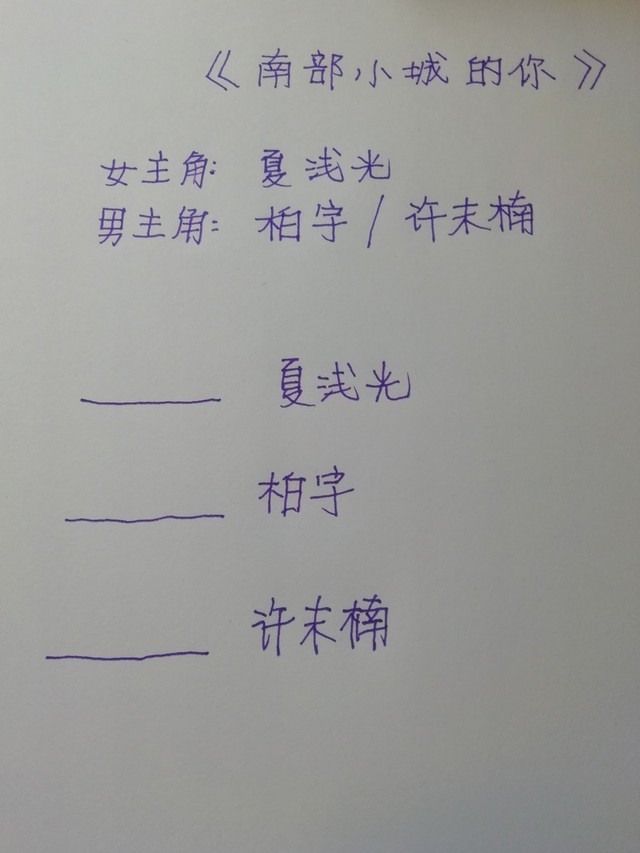 《南部小城的你》
女主角: 夏浅光
男主角: 柏宇/许末楠
夏浅光
柏宇
许末楠